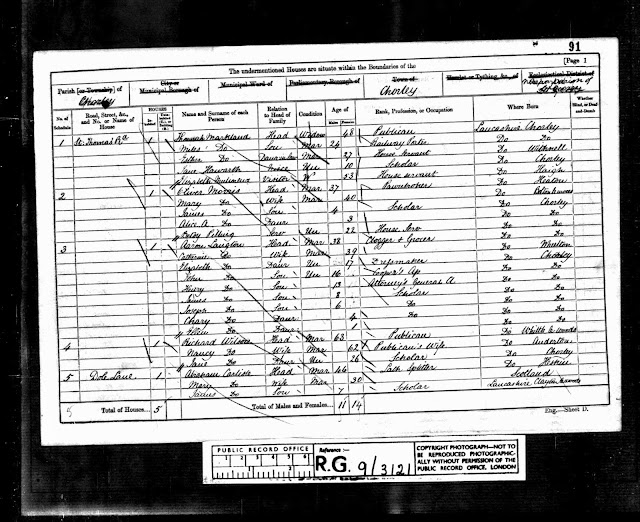 91
The undermentioned Houses are situate within the Boundaries of the
[Page 1
Parish [or Township] of
Chorley
City or
Municipal Borough of
Municipal Ward of
Parliamentary Borough of
Town of
Chorley
Hamlet or Tything, &c., of
Ecclesiastical District of
No. of Schedule
Road, Street, &c., and No. or Name of House
HOUSES
Name and Surname of each Person
Relation to Head of Family
Condition
Age of
Males
Females
Rank, Profession, or Occupation
Where Born
Whether Blind, or Deaf-and-Dumb
1 St. Thomas Rd 1 Markland Head Widow 48 Publican Lancashire Chorley
Miles Do Son Mar 24 Railway Porter Do Do
Esther Do Mar 27 House Servant Do Withnell
Jane Haworth Niece Un 10 Scholar Do Chorley
Elizabeth Visitor W 53 House servant Do Haigh
2 1 Oliver Morris Head Mar 37 Pawnbroker Do
Mary Do Wife Mar 40 Do
James Do Son 4 Scholar Do Chorley
Alice A Do Daur 3 Do Do
Betsy Pilling Serv Un 22 House Serv Do
3 1 Aaron Langton Head Mar 38 Clogger & Grocer Do Wheelton
Catherine Do Wife Mar 39 Do Chorley
Elizabeth Do Daur Un 17 Dressmaker Do Do
John Do Son Un 16 Cooper's Ap Do Do
Henry Do Son 13 Attorney's General A Do Do
James Do Son 8 Scholar Do Do
Joseph Do Son 6 Do Do Do
Do Daur 4 Do Do Do
Ellen Do Daur 1 Do Do
4 1 Richard Wilson Head Mar 63 Publican Do Whittle le Woods
Nancy Do Wife Mar 62 Publican's Wife Do Anderton
Jane Do Daur Un 26 Scholar Do Chorley
5 Dole Lane 1 Abraham Carlisle Head Mar 46 Do
Mary Do Wife Mar 30 Scotland
James Do Son 7 Scholar Lancashire Clayton
5
Total of Houses
5
Total of Males and Females
11 14
Eng.—Sheet D.
PUBLIC RECORD OFFICE
1 2 3 4 5 6
Reference :-
R.G. 9/3121
COPYRIGHT PHOTOGRAPH—NOT TO BE REPRODUCED PHOTOGRAPHICALLY WITHOUT PERMISSION OF THE PUBLIC RECORD OFFICE, LONDON